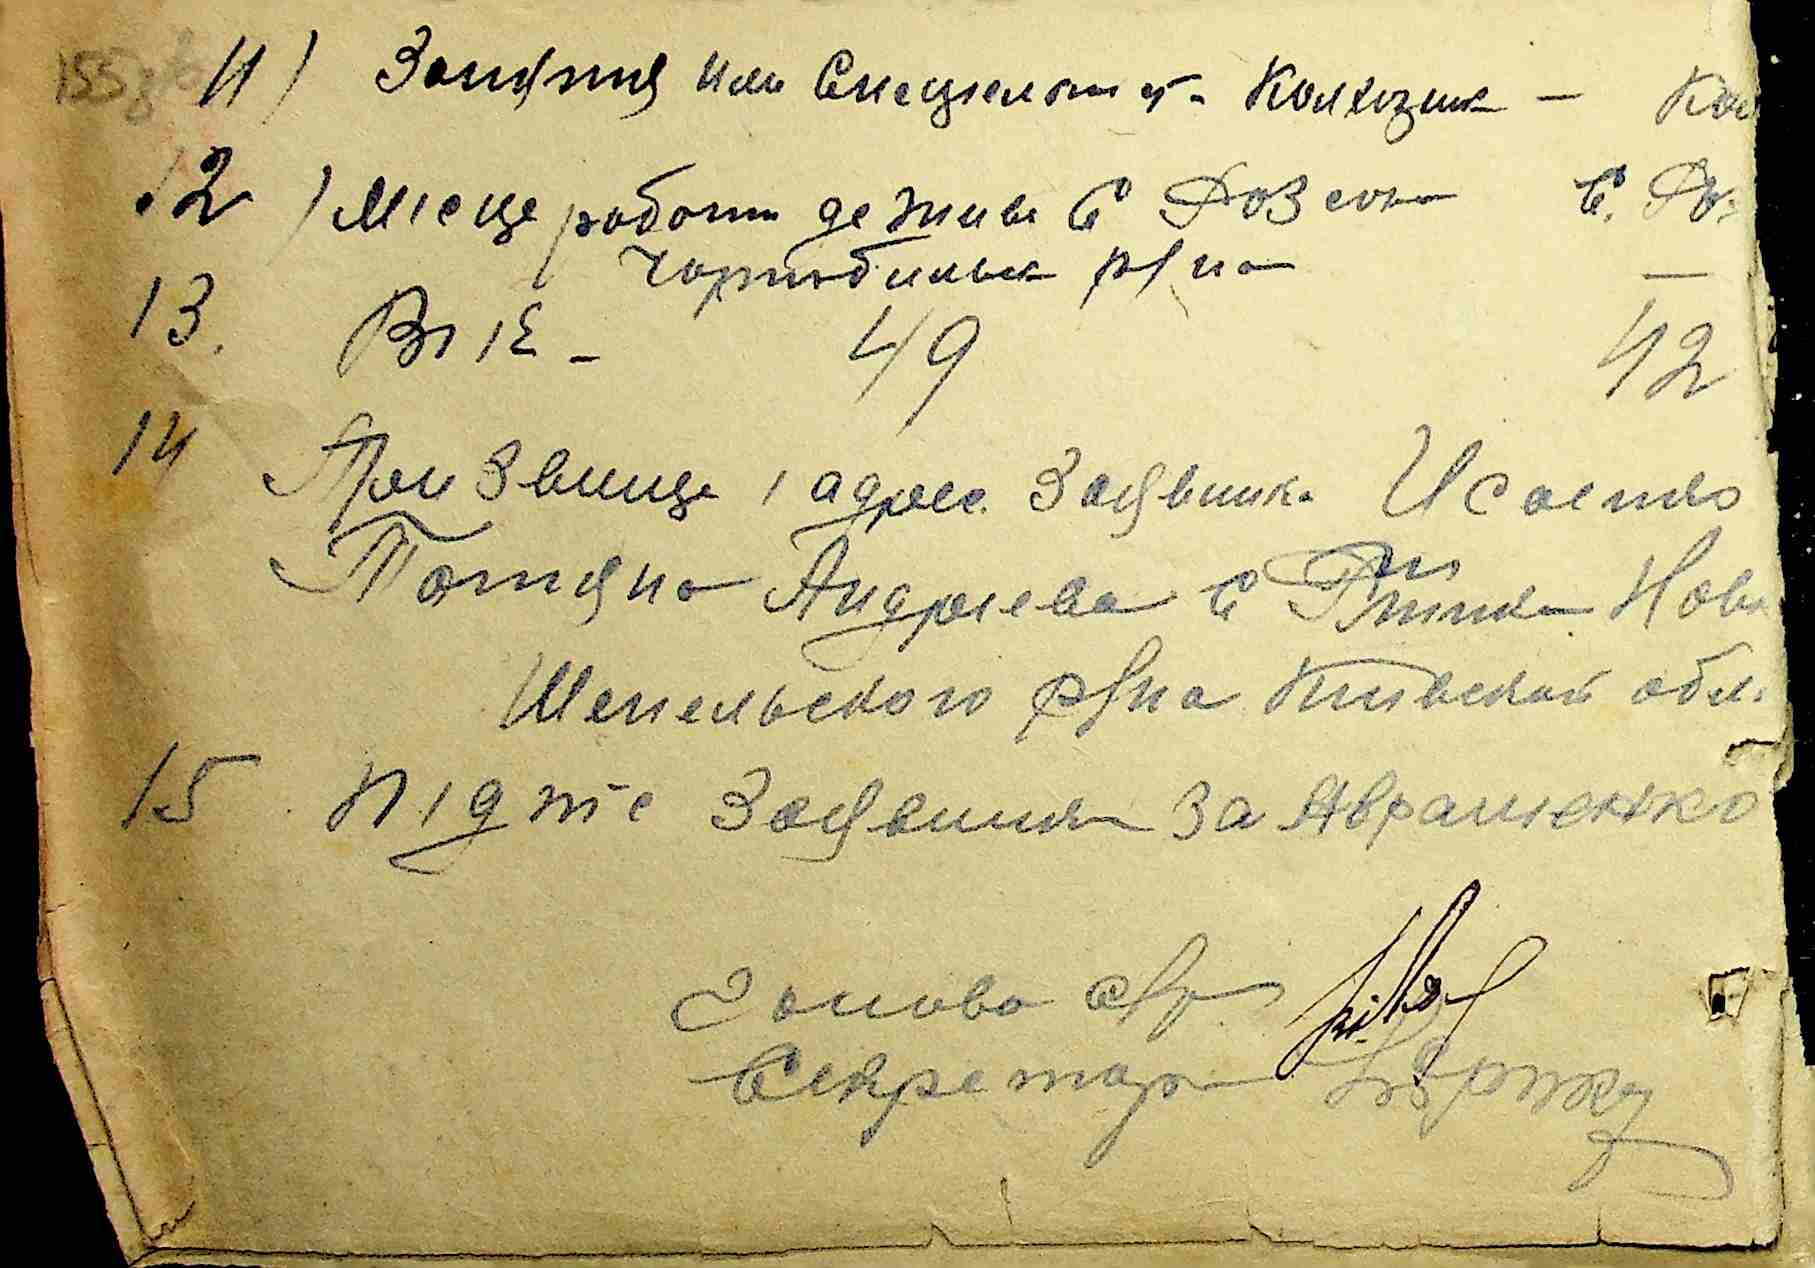 155зв
11) Заняття или Спецельност. Колхозник – Кол
12) Місце работи де живе С Розсоха С. Роз
Чорнобильск р/на —
13. Вік – 49 42
14 Призвище і адрес. Заявника Исаенко
Татяна Андрієва С Річиця Ново
Шепельского р/на Київской обл.
15 Підпис Заявника за Авраменко
Голова с/р
Секретарь